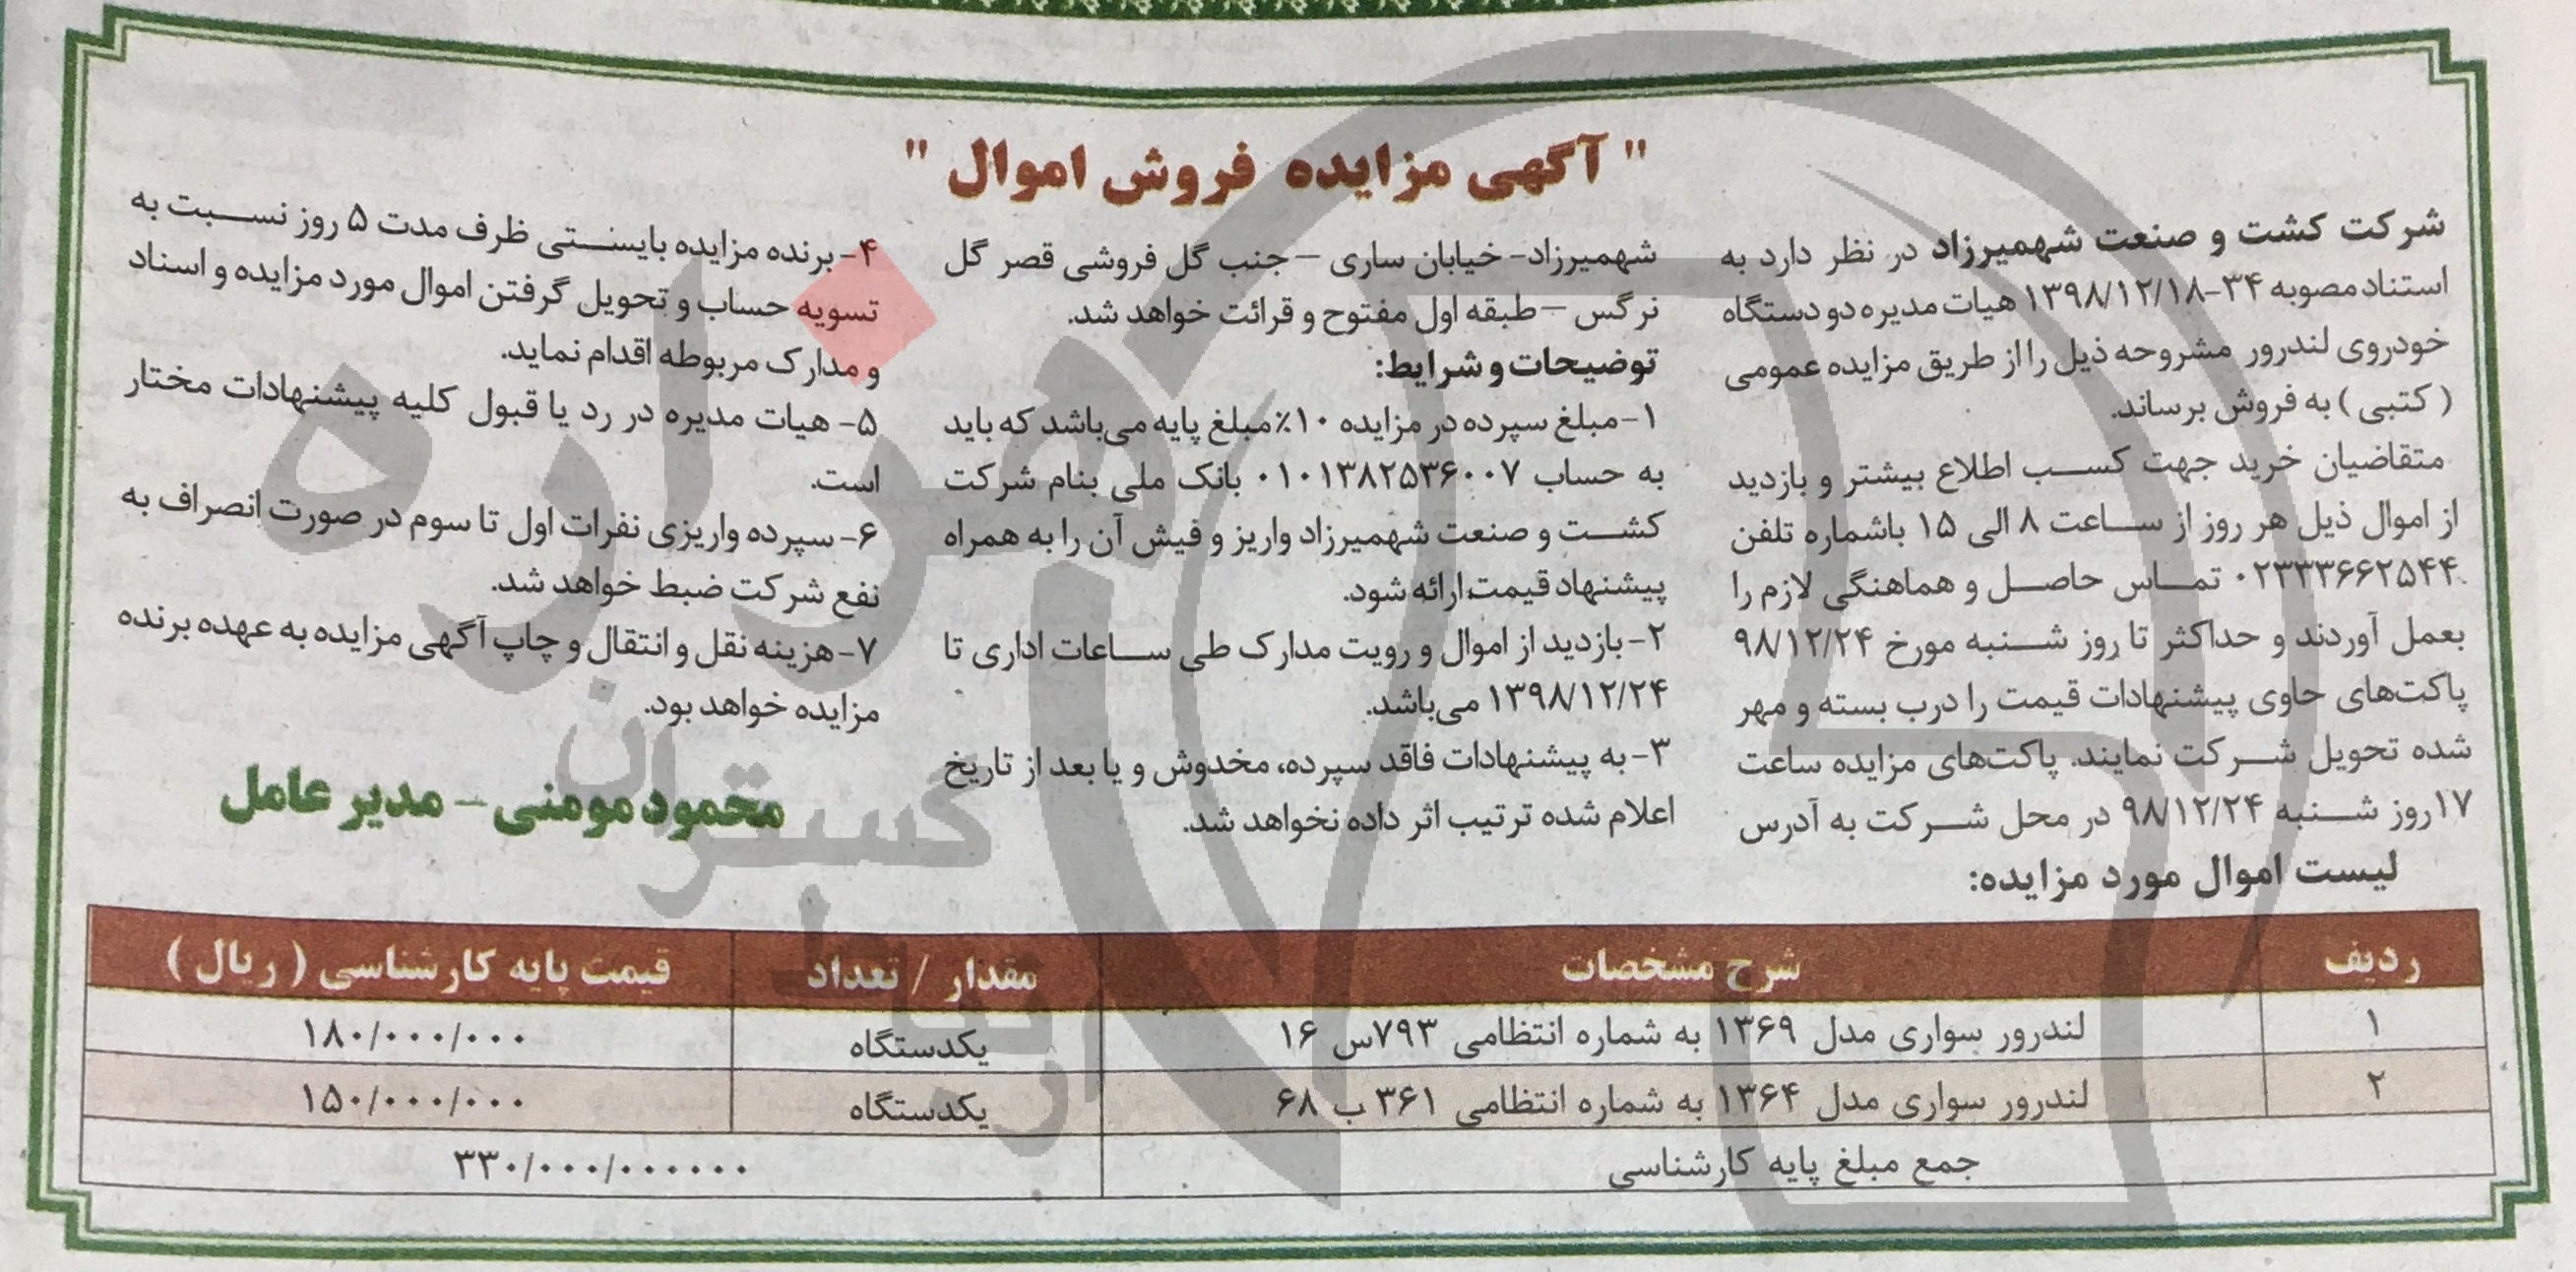 " آگهی مزایده فروش اموال "
شرکت کشت و صنعت شهمیرزاد در نظر دارد به
استناد مصوبه ۳۴-۱۳۹۸/۱۲/۱۸ هیات مدیره دو دستگاه
خودروی لندرور مشروحه ذیل را از طریق مزایده عمومی
( کتبی ) به فروش برساند.
متقاضیان خرید جهت کسب اطلاع بیشتر و بازدید
از اموال ذیل هر روز از ساعت ۸ الی ۱۵ باشماره تلفن
۰۲۳۳۳۶۶۲۵۴۴ تماس حاصل و هماهنگی لازم را
بعمل آوردند و حداکثر تا روز شنبه مورخ ۹۸/۱۲/۲۴
پاکت‌های حاوی پیشنهادات قیمت را درب بسته و مهر
شده تحویل شرکت نمایند. پاکت‌های مزایده ساعت
۱۷روز شنبه ۹۸/۱۲/۲۴ در محل شرکت به آدرس
شهمیرزاد- خیابان ساری – جنب گل فروشی قصر گل
نرگس – طبقه اول مفتوح و قرائت خواهد شد.
توضیحات و شرایط:
۱-مبلغ سپرده در مزایده ۱۰٪مبلغ پایه می‌باشد که باید
به حساب ۰۱۰۱۳۸۲۵۳۶۰۰۷ بانک ملی بنام شرکت
کشت و صنعت شهمیرزاد واریز و فیش آن را به همراه
پیشنهاد قیمت ارائه شود.
۲-بازدید از اموال و رویت مدارک طی ساعات اداری تا
۱۳۹۸/۱۲/۲۴ می‌باشد.
۳-به پیشنهادات فاقد سپرده، مخدوش و یا بعد از تاریخ
اعلام شده ترتیب اثر داده نخواهد شد.
۴-برنده مزایده بایستی ظرف مدت ۵ روز نسبت به
تسویه حساب و تحویل گرفتن اموال مورد مزایده و اسناد
و مدارک مربوطه اقدام نماید.
۵- هیات مدیره در رد یا قبول کلیه پیشنهادات مختار
است.
۶-سپرده واریزی نفرات اول تا سوم در صورت انصراف به
نفع شرکت ضبط خواهد شد.
۷-هزینه نقل و انتقال و چاپ آگهی مزایده به عهده برنده
مزایده خواهد بود.
محمود مومنی – مدیر عامل
لیست اموال مورد مزایده:
ردیف شرح مشخصات مقدار / تعداد قیمت پایه کارشناسی ( ریال )
۱ لندرور سواری مدل ۱۳۶۹ به شماره انتظامی ۷۹۳س ۱۶ یکدستگاه ۱۸۰/۰۰۰/۰۰۰
۲ لندرور سواری مدل ۱۳۶۴ به شماره انتظامی ۳۶۱ ب ۶۸ یکدستگاه ۱۵۰/۰۰۰/۰۰۰
جمع مبلغ پایه کارشناسی ۳۳۰/۰۰۰/۰۰۰۰۰۰
هزاره
گستران
ارتباط